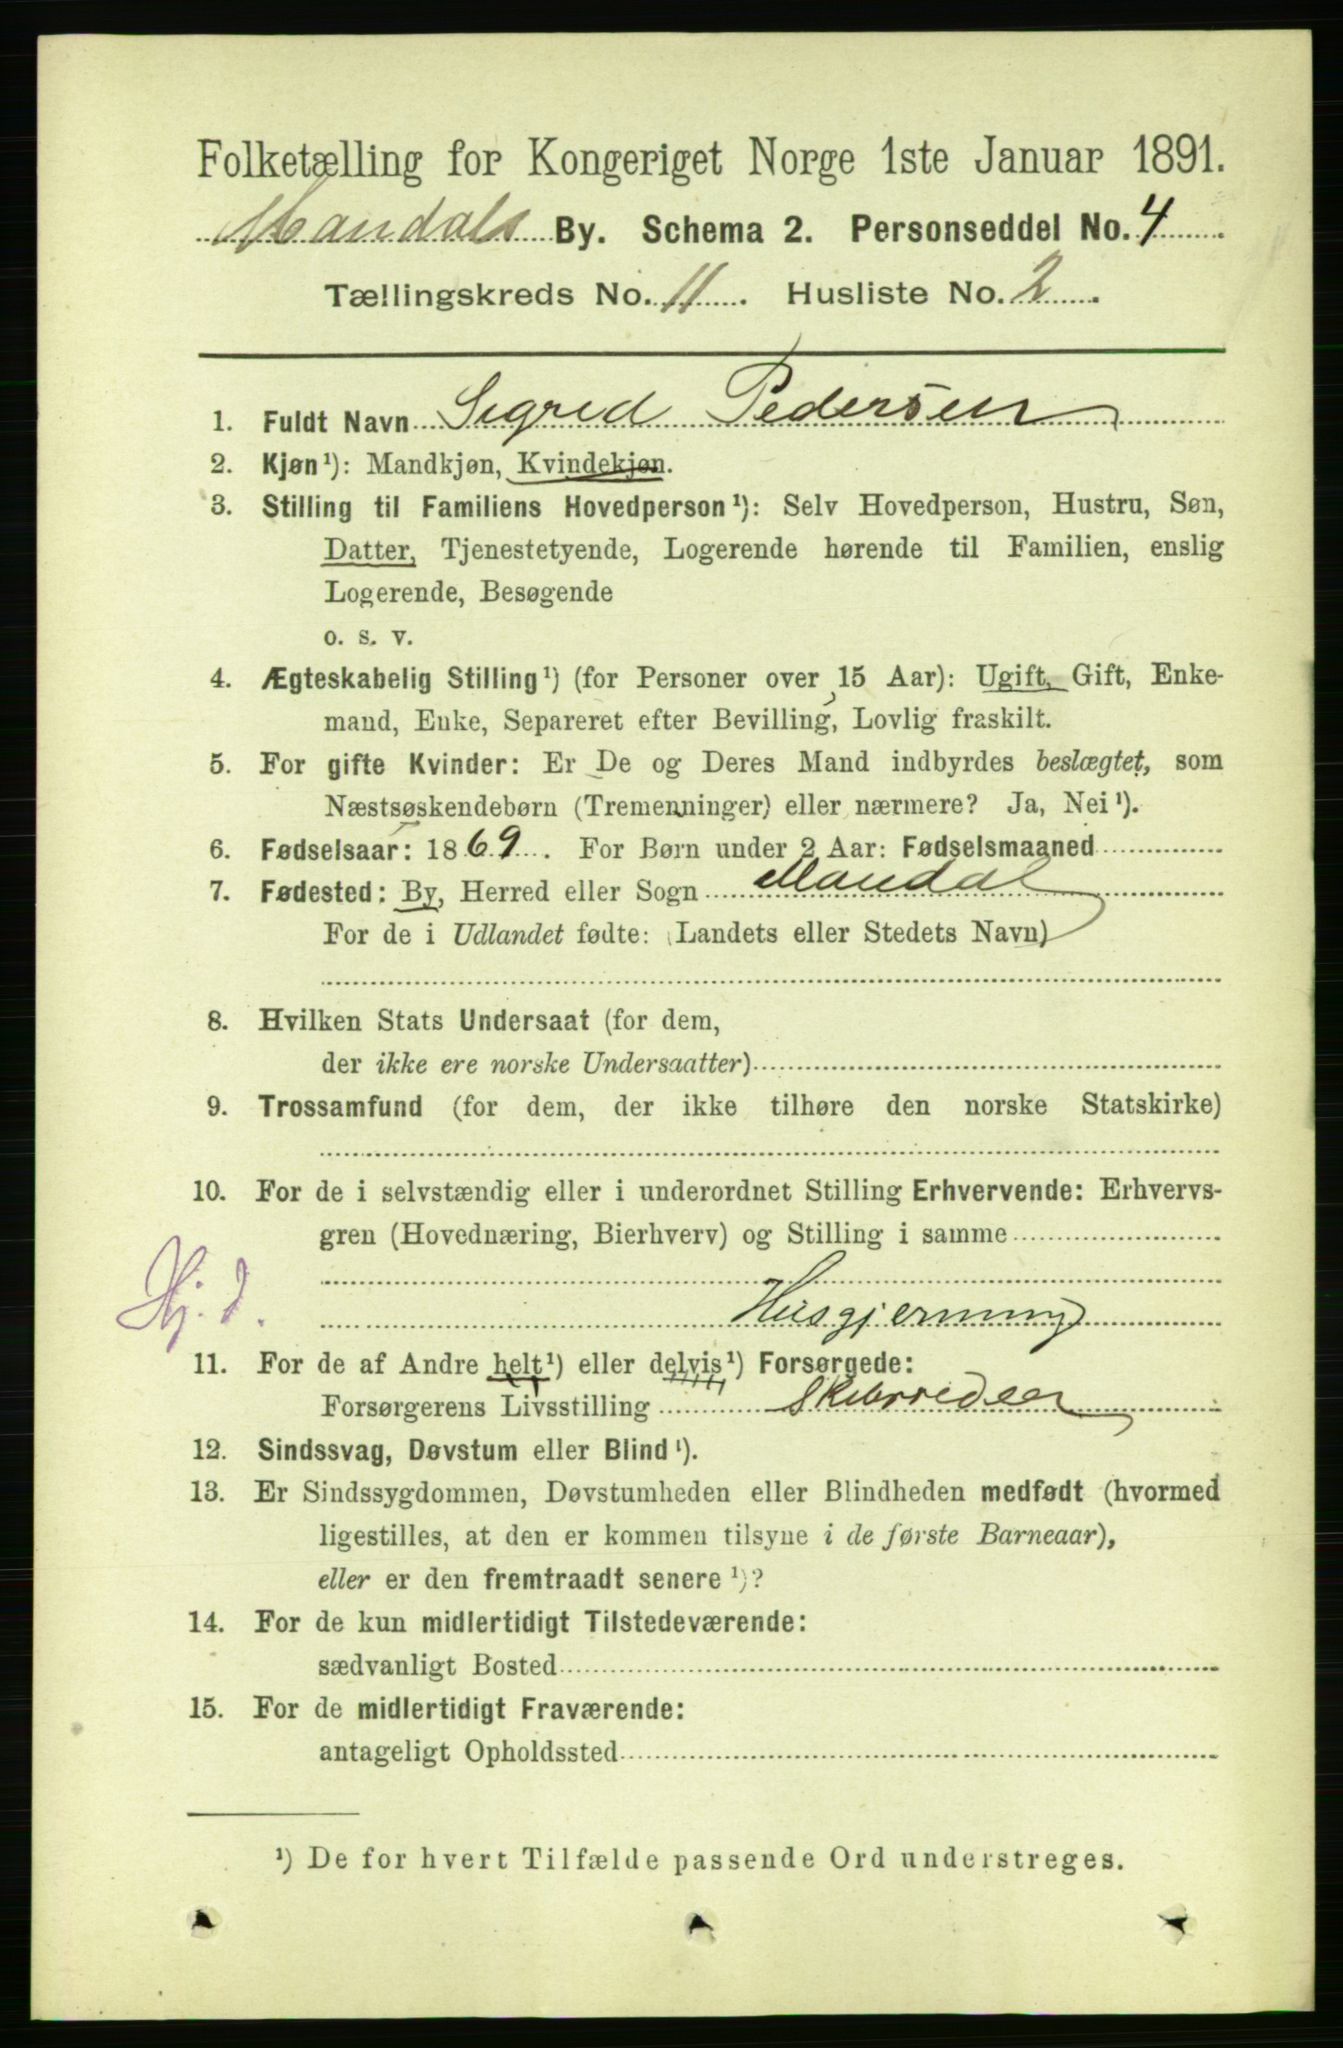 Folketælling for Kongeriget Norge 1ste Januar 1891.
Mandals By. Schema 2. Personseddel No. 4
Tællingskreds No. 11. Husliste No. 2.
1. Fuldt Navn Sigrid Pedersen
2. Kjøn¹): Mandkjøn, Kvindekjøn.
3. Stilling til Familiens Hovedperson¹): Selv Hovedperson, Hustru, Søn,
Datter, Tjenestetyende, Logerende hørende til Familien, enslig
Logerende, Besøgende
o. s. v.
4. Ægteskabelig Stilling¹) (for Personer over 15 Aar): Ugift, Gift, Enke-
mand, Enke, Separeret efter Bevilling, Lovlig fraskilt.
5. For gifte Kvinder: Er De og Deres Mand indbyrdes beslægtet, som
Næstsøskendebørn (Tremenninger) eller nærmere? Ja, Nei¹).
6. Fødselsaar: 1869. For Børn under 2 Aar: Fødselsmaaned
7. Fødested: By, Herred eller Sogn Mandal
For de i Udlandet fødte: (Landets eller Stedets Navn)
8. Hvilken Stats Undersaat (for dem,
der ikke ere norske Undersaatter)
9. Trossamfund (for dem, der ikke tilhøre den norske Statskirke)
10. For de i selvstændig eller i underordnet Stilling Erhvervende: Erhvervs-
gren (Hovednæring, Bierhverv) og Stilling i samme
Hj. d. Husgjerning
11. For de af Andre helt¹) eller delvis¹) Forsørgede:
Forsørgerens Livsstilling Skibsreder
12. Sindssvag, Døvstum eller Blind¹).
13. Er Sindssygdommen, Døvstumheden eller Blindheden medfødt (hvormed
ligestilles, at den er kommen tilsyne i de første Barneaar),
eller er den fremtraadt senere¹)?
14. For de kun midlertidigt Tilstedeværende:
sædvanligt Bosted
15. For de midlertidigt Fraværende:
antageligt Opholdssted
¹) De for hvert Tilfælde passende Ord understreges.